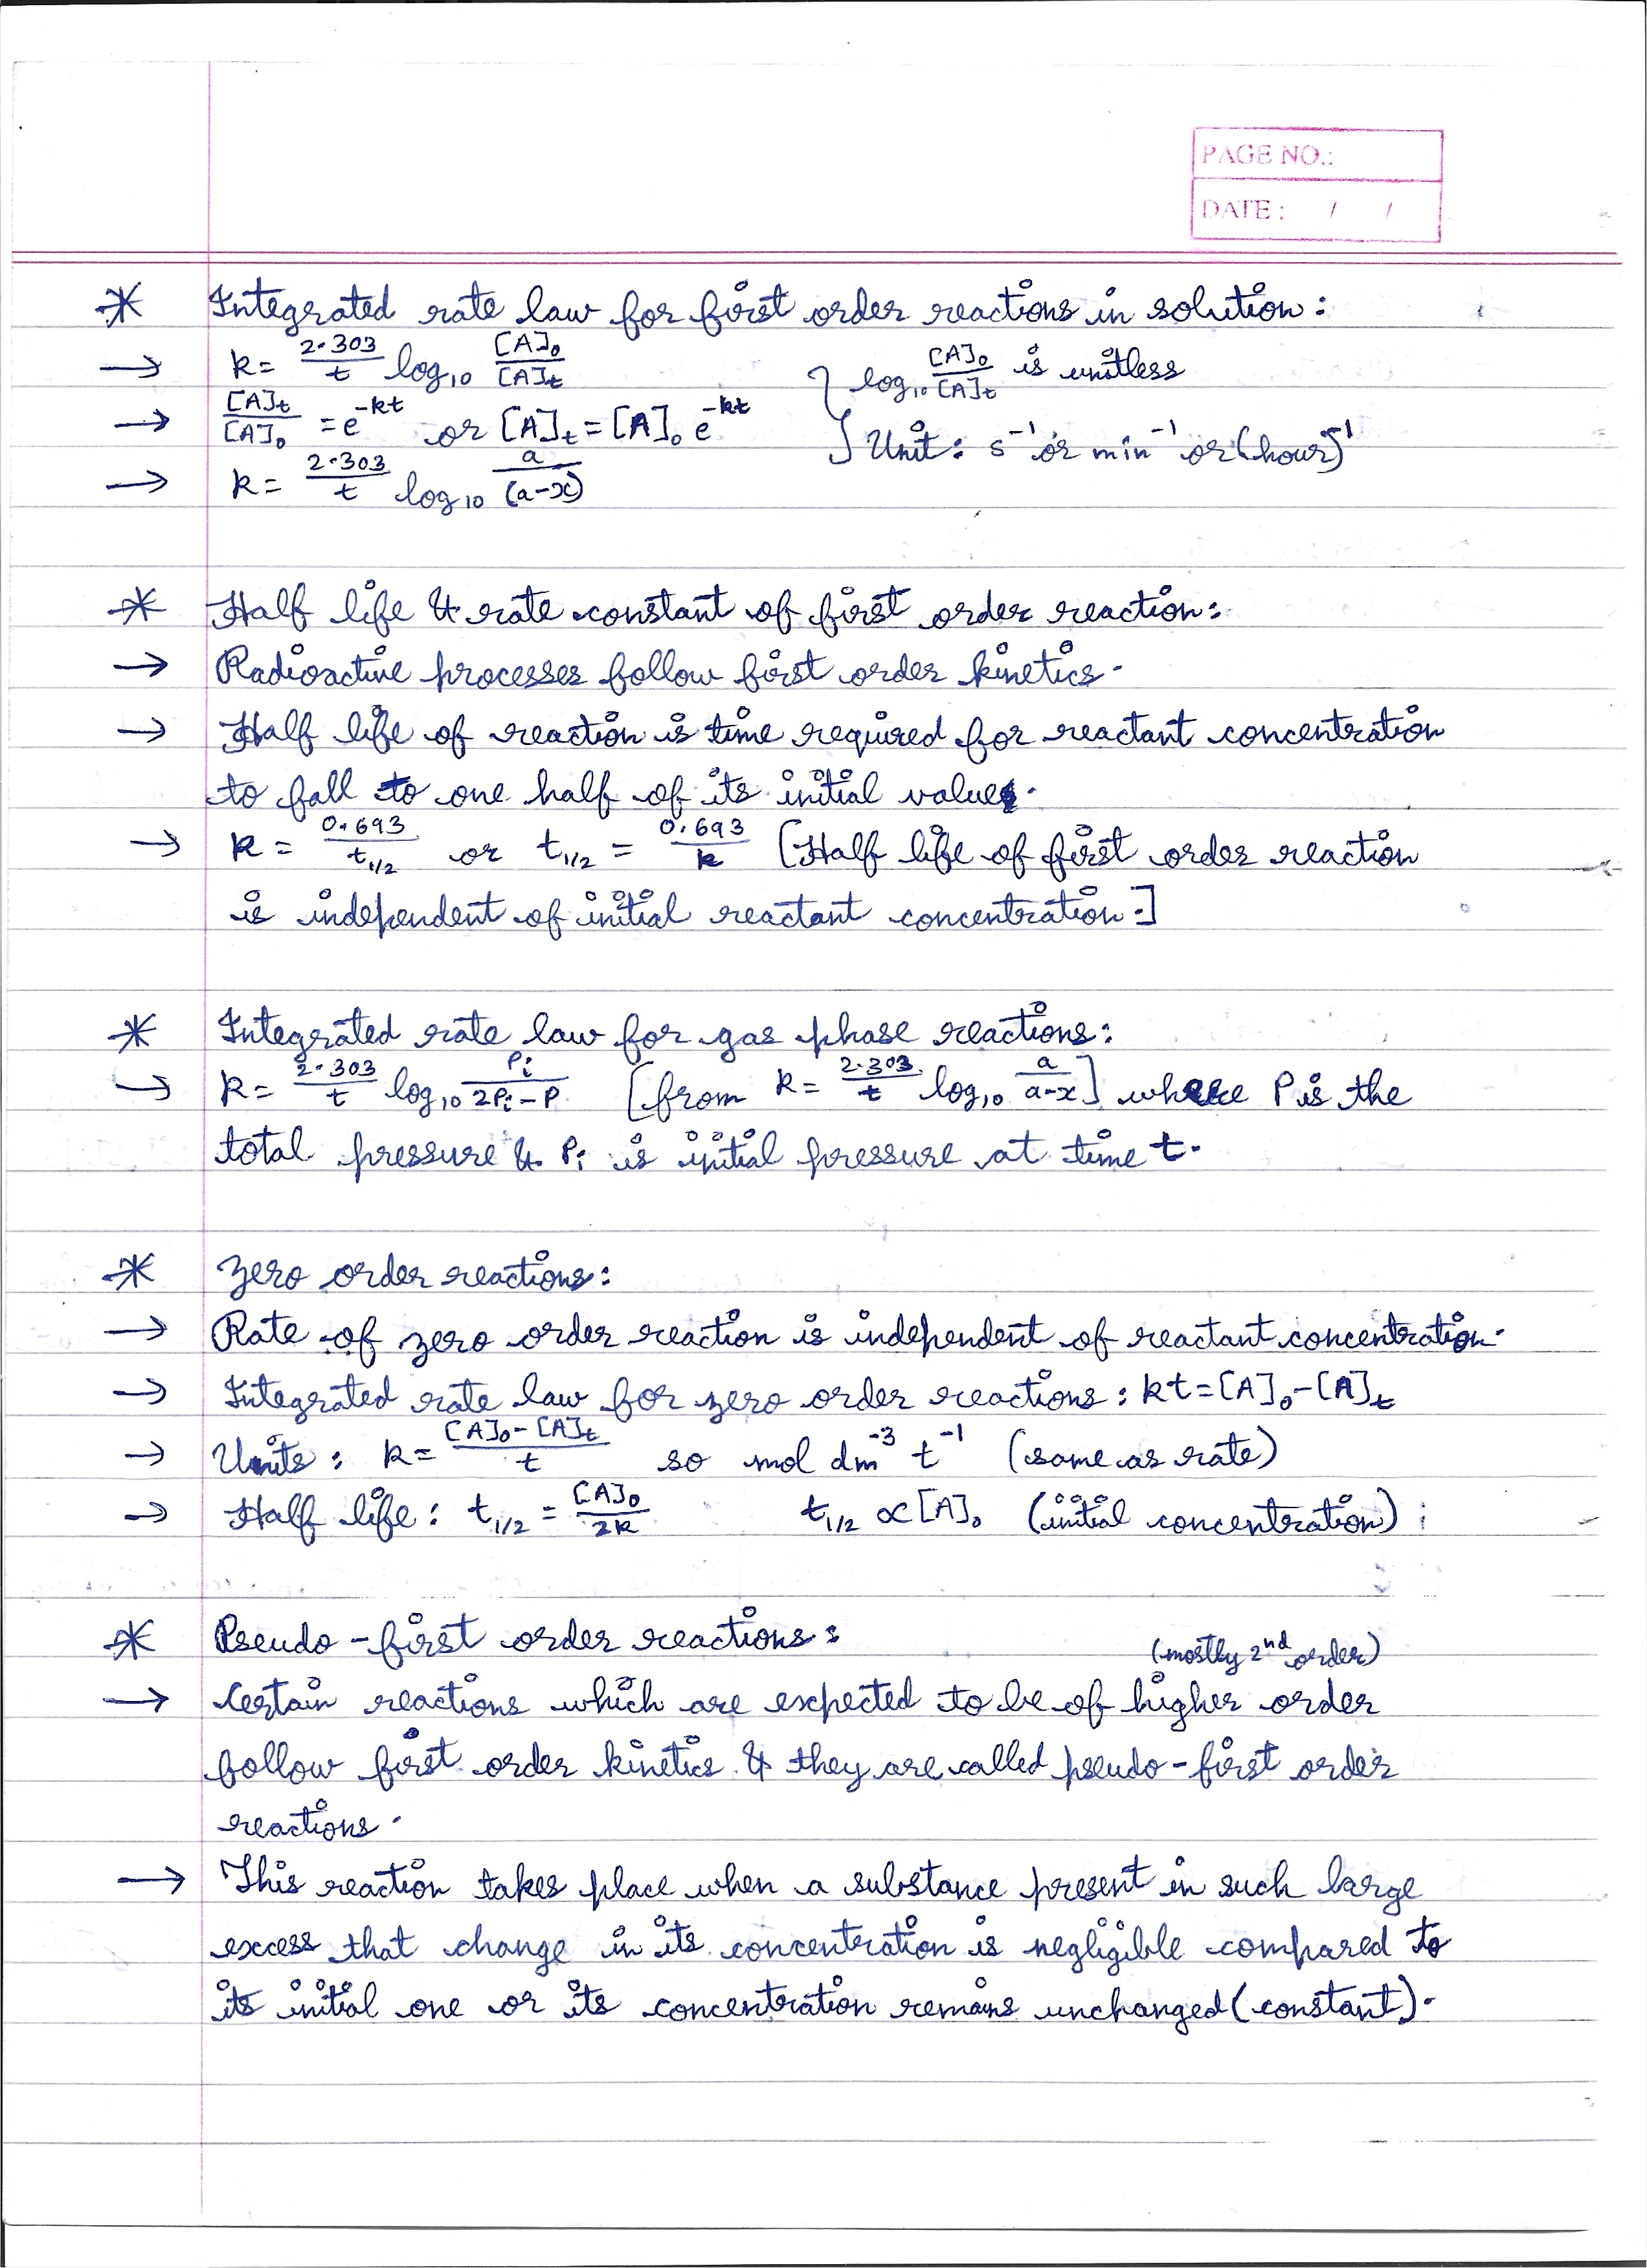 PAGE NO.:
DATE : / /
* Integrated rate law for first order reactions in solution:
→ k = 2.303/t log₁₀ [A]₀/[A]t } log₁₀ [A]₀/[A]t is unitless
→ [A]t/[A]₀ = e^-kt or [A]t = [A]₀ e^-kt } Unit: s⁻¹ or min⁻¹ or (hour)⁻¹
→ k = 2.303/t log₁₀ a/(a-x)
* Half life & rate constant of first order reaction:
→ Radioactive processes follow first order kinetics.
→ Half life of reaction is time required for reactant concentration
to fall to one half of its initial value.
→ k = 0.693/t₁/₂ or t₁/₂ = 0.693/k [Half life of first order reaction
is independent of initial reactant concentration.]
* Integrated rate law for gas phase reactions:
→ k = 2.303/t log₁₀ Pi/2Pi-P [from k = 2.303/t log₁₀ a/a-x] where P is the
total pressure & Pi is initial pressure at time t.
* Zero order reactions:
→ Rate of zero order reaction is independent of reactant concentration.
→ Integrated rate law for zero order reactions: kt = [A]₀ - [A]t
→ Units: k = [A]₀ - [A]t/t so mol dm⁻³ t⁻¹ (same as rate)
→ Half life: t₁/₂ = [A]₀/2k t₁/₂ ∝ [A]₀ (initial concentration);
* Pseudo-first order reactions:
(mostly 2nd order)
→ Certain reactions which are expected to be of higher order
follow first order kinetics & they are called pseudo-first order
reactions.
→ This reaction takes place when a substance present in such large
excess that change in its concentration is negligible compared to
its initial one or its concentration remains unchanged (constant).